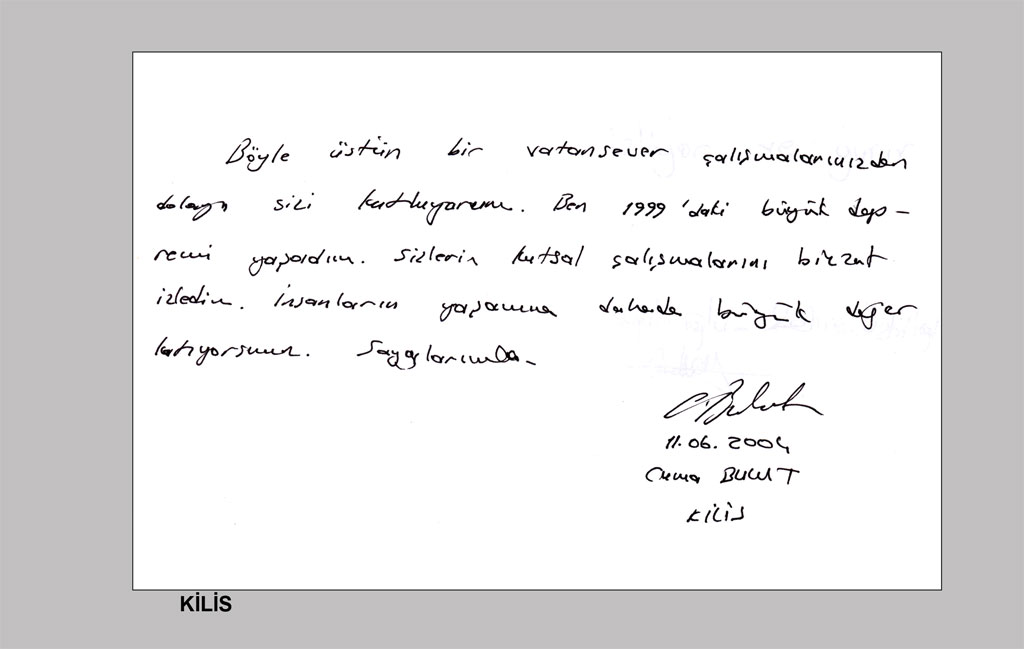 Böyle üstün bir vatansever çalışmalarınızdan
dolayı sizi kutluyorum. Ben 1999'daki büyük dep-
remi yaşadım. Sizlerin kutsal çalışmalarını bizzat
izledim. İnsanların yaşamına dahada büyük değer
katıyorsunuz. Saygılarımla-
C. Bulut
11.06.2004
Cuma BULUT
KİLİS
KİLİS